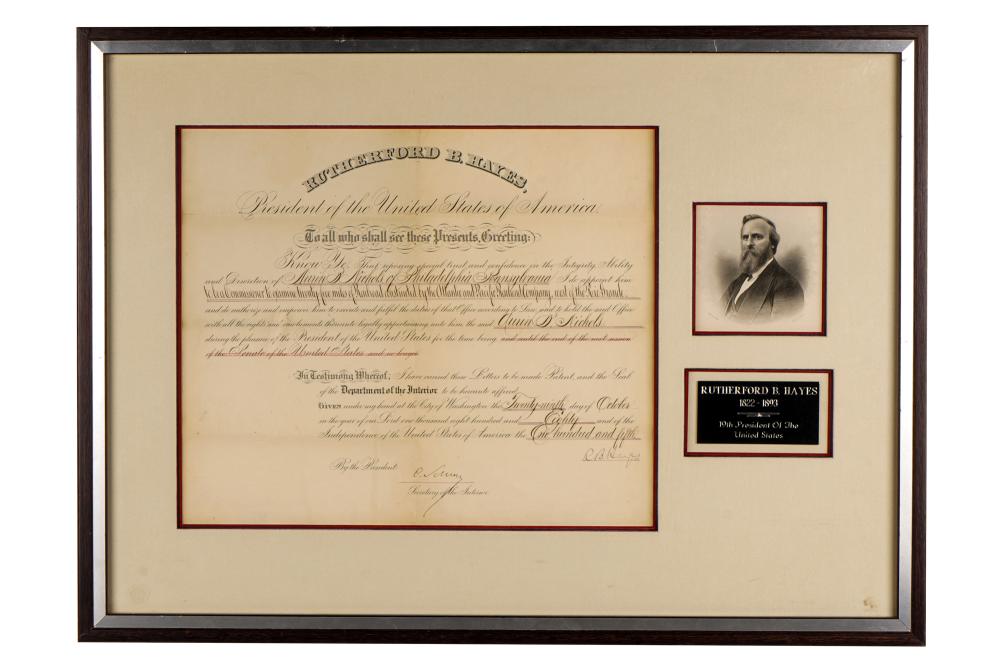 RUTHERFORD B. HAYES,
President of the United States of America.
To all who shall see these Presents, Greeting:
Know Ye, That reposing special trust and confidence in the Integrity, Ability
and Discretion of B. Nichols of Philadelphia Pennsylvania I do appoint him
to be a Commissioner to examine twenty five miles of Railroad constructed by the Atlantic and Pacific Railroad Company, west of the Rio Grande
and do authorize and empower him to execute and fulfil the duties of that Office according to Law, and to hold the said Office
with all the rights and emoluments thereunto legally appertaining unto him the said B. Nichols
during the pleasure of the President of the United States for the time being and until the end of the next session
of the Senate of the United States and no longer
In Testimony Whereof, I have caused these Letters to be made Patent, and the Seal
of the Department of the Interior to be hereunto affixed.
GIVEN under my hand at the City of Washington the Twenty-ninth day of October
in the year of our Lord one thousand eight hundred and Eighty and of the
Independence of the United States of America the One hundred and fifth.
R. B. Hayes
By the President:
C. Schurz
Secretary of the Interior
RUTHERFORD B. HAYES
1822 - 1893
19th President Of The
United States